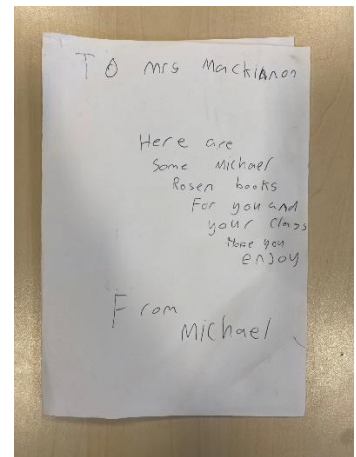 TO Mrs Mackinnon
Here are
Some Michael
Rosen books
For you and
your Class
Hope you
enjoy
From
Michael